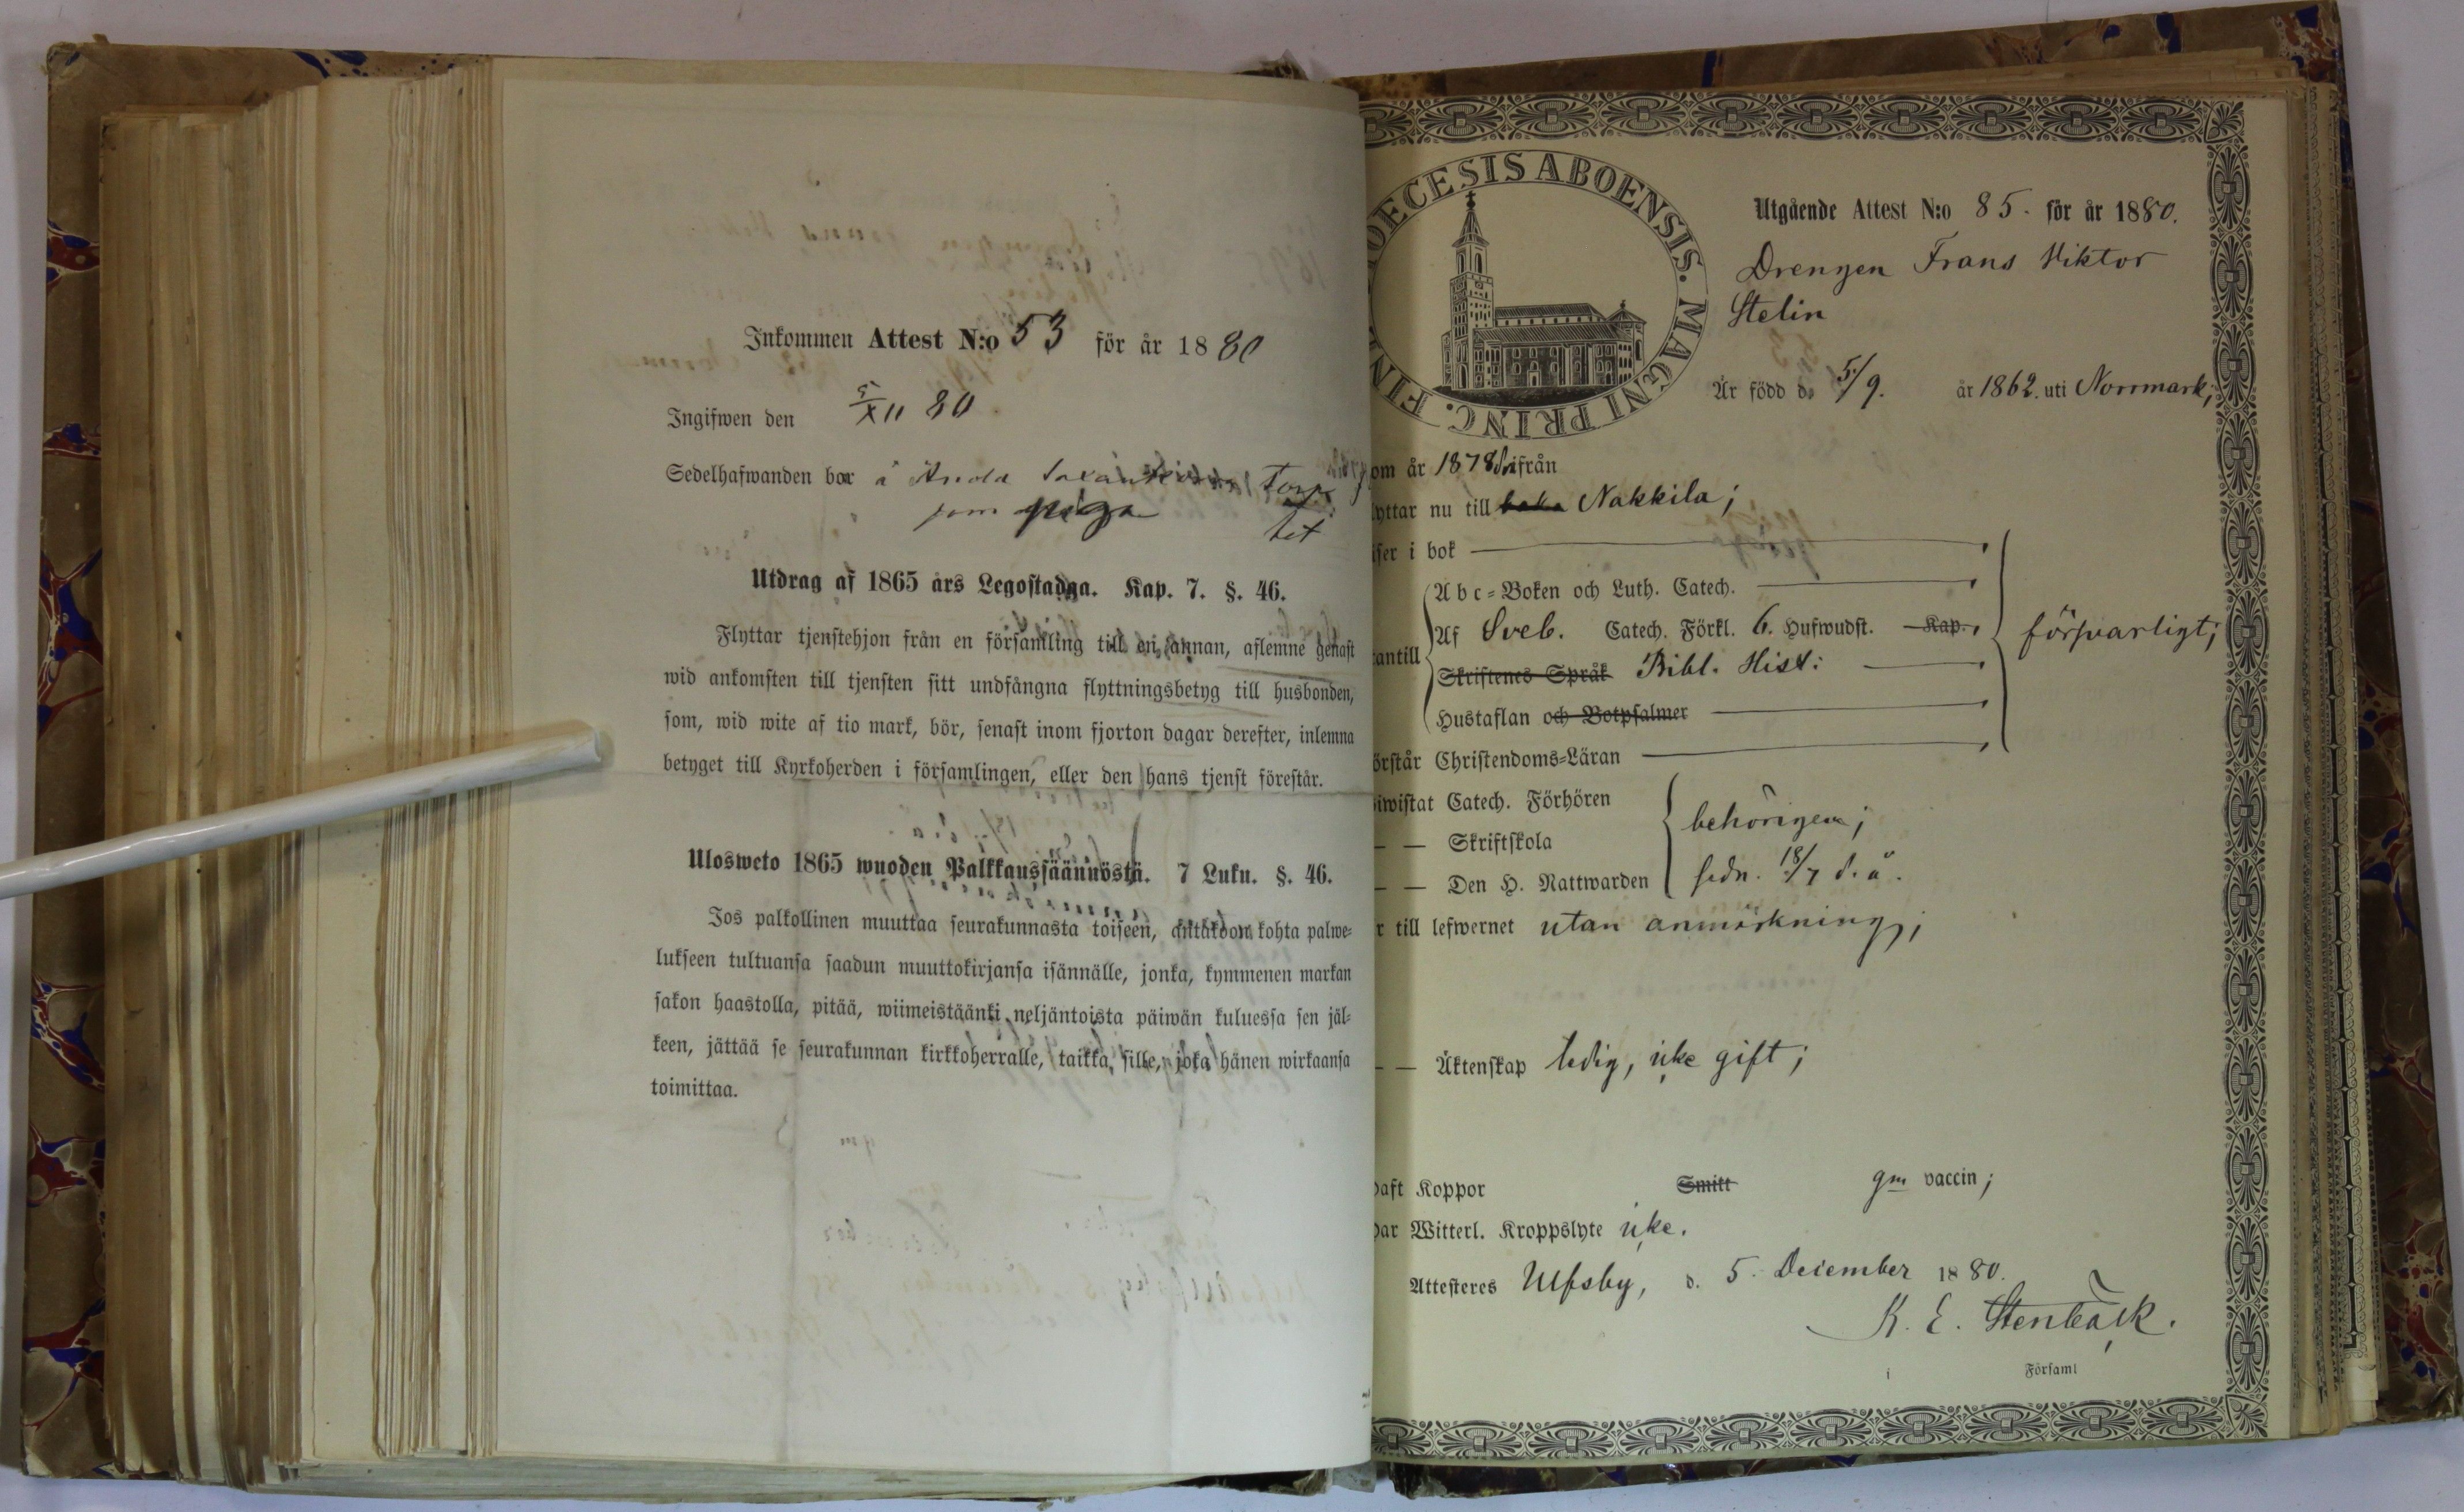 Inkommen Attest N:o 53 för år 1880
Ingifwen den 5/XII 80
Sedelhafwanden bor å Torp
som piga tet
Utdrag af 1865 års Legostadga. Kap. 7. §. 46.
Flyttar tjenstehjon från en församling till en annan, aflemne genast
wid ankomsten till tjensten sitt undfångna flyttningsbetyg till husbonden,
som, wid wite af tio mark, bör, senast inom fjorton dagar derefter, inlemna
betyget till Kyrkoherden i församlingen, eller den hans tjenst förestår.
Ulosweto 1865 wuoden Palkkaussäännöstä. 7 Luku. §. 46.
Jos palkollinen muuttaa seurakunnasta toiseen, antakoon kohta palwe-
lukseen tultuansa saadun muuttokirjansa isännälle, jonka, kymmenen markan
sakon haastolla, pitää, wiimeistäänki neljäntoista päiwän kuluessa sen jäl-
keen, jättää se seurakunnan kirkkoherralle, taikka sille, joka hänen wirkaansa
toimittaa.
OECESIS ABOENSIS. MAGNI PRINC. FIN
Utgående Attest N:o 85. för år 1880.
Drengen Frans Viktor
Stelin
Är född d. 5/9. år 1862. uti Norrmark;
om år 1878 ifrån
lyttar nu till baka Nakkila;
iser i bok
Abc-Boken och Luth. Catech.
Af Sveb. Catech. Förkl. 6. Hufwudst. Kap.
antill
försvarligt;
Skriftenes Språk Bibl. Hist:
Hustaflan och Botpsalmer
örstår Christendoms-Läran
iwistat Catech. Förhören
behörigen;
— — Skriftskola
— — Den H. Nattwarden sedn. 18/7 d. å.
r till lefwernet utan anmärkning;
— — Äktenskap ledig, icke gift;
haft Koppor Smitt gm vaccin;
har Witterl. Kroppslyte icke.
Attesteres Ulfsby, d. 5. December 1880.
K. E. Stenbäck.
i Församl